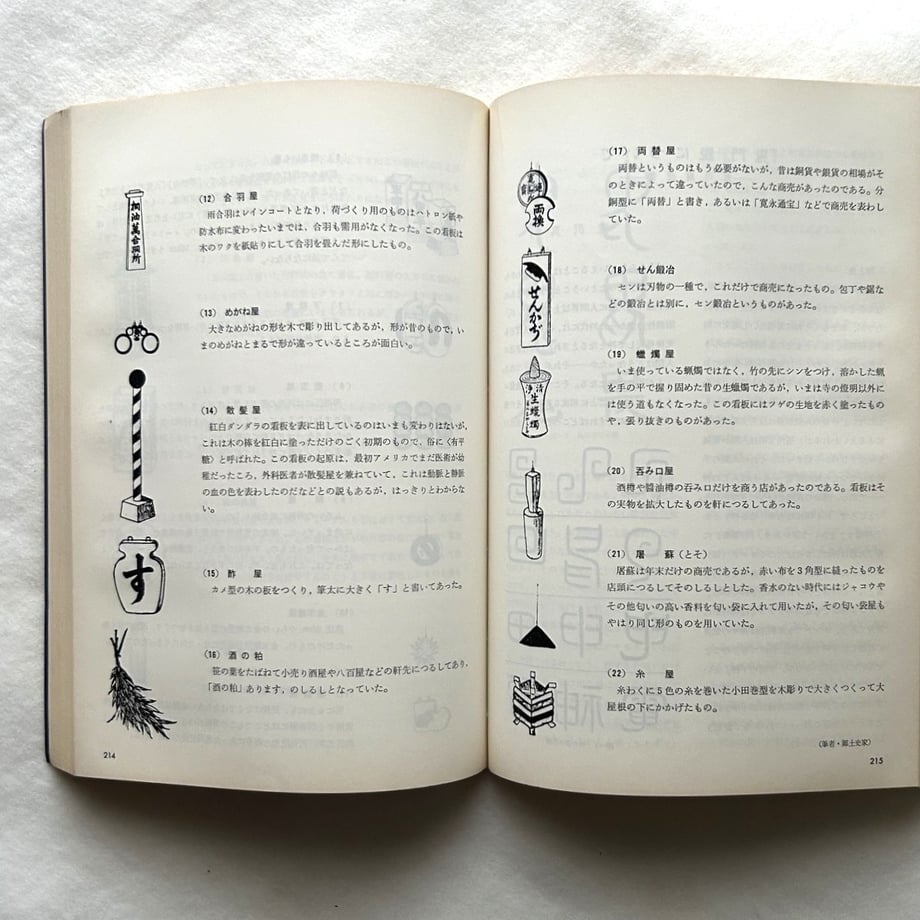 (12) 合羽屋
雨合羽はレインコートとなり，荷づくり用のものはハトロン紙や
防水布に変わったいまでは，合羽も需用がなくなった。この看板は
木のワクを紙貼りにして合羽を畳んだ形にしたもの。
桐油萬合羽所
(13) めがね屋
大きなめがねの形を木で彫り出してあるが，形が昔のもので，い
まのめがねとまるで形が違っているところが面白い。
(14) 散髪屋
紅白ダンダラの看板を表に出しているのはいまも変わりはないが，
これは木の棒を紅白に塗っただけのごく初期のもので，俗に〈有平
糖〉と呼ばれた。この看板の起原は，最初アメリカでまだ医術が幼
稚だったころ，外科医者が散髪屋を兼ねていて，これは動脈と静脈
の血の色を表わしたのだなどとの説もあるが，はっきりとわからな
い。
(15) 酢　屋
カメ型の木の板をつくり，筆太に大きく「す」と書いてあった。
す
(16) 酒の粕
笹の葉をたばねて小売り酒屋や八百屋などの軒先につるしてあり，
「酒の粕」あります，のしるしとなっていた。
214
(17) 両替屋
両替というものはもう必要がないが，昔は銅貨や銀貨の相場がそ
のときによって違っていたので，こんな商売があったのである。分
銅型に「両替」と書き，あるいは「寛永通宝」などで商売を表わし
ていた。
両換
(18) せん鍛冶
センは刃物の一種で，これだけで商売になったもの。包丁や鋸な
どの鍛冶とは別に，セン鍛冶というものがあった。
せんかぢ
(19) 蠟燭屋
いま使っている蝋燭ではなく，竹の先にシンをつけ，溶かした蝋
を手の平で握り固めた昔の生蠟燭であるが，いまは寺の燈明以外に
は使う道もなくなった。この看板にはツゲの生地を赤く塗ったもの
や，張り抜きのものがあった。
清浄
生蠟燭
(20) 呑み口屋
酒樽や醤油樽の呑み口だけを商う店があったのである。看板はそ
の実物を拡大したものを軒につるしてあった。
(21) 屠　蘇（とそ）
屠蘇は年末だけの商売であるが，赤い布を3角型に縫ったものを
店頭につるしてそのしるしとした。香水のない時代にはジャコウや
その他匂いの高い香料を匂い袋に入れて用いたが，その匂い袋屋も
やはり同じ形のものを用いていた。
(22) 糸　屋
糸わくに5色の糸を巻いた小田巻型を木彫りで大きくつくって大
屋根の下にかかげたもの。
（筆者・郷土史家）
215